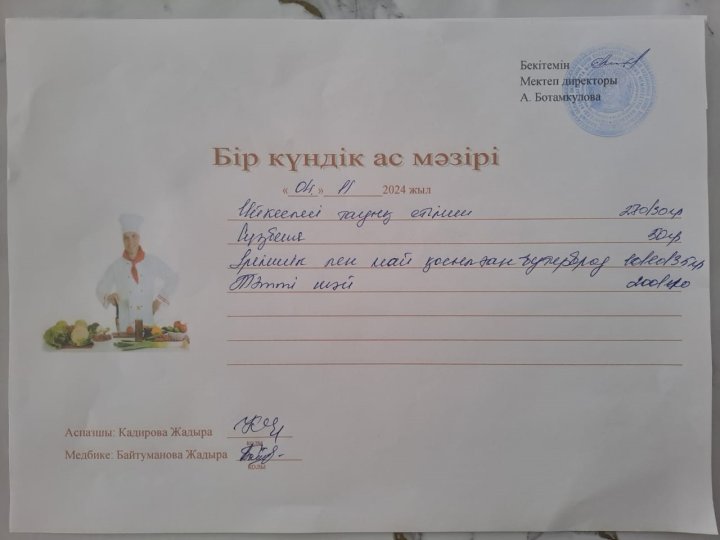 Бекітемін
Мектеп директоры
А. Ботамкулова
Бір күндік ас мәзірі
« 04 » 11 2024 жыл
тауық етімен 270/30гр
50гр
Ірімшік пен май қосылған бутерброд
Тәтті шәй
Аспазшы: Кадирова Жадыра
қолы
Медбике: Байтуманова Жадыра
қолы